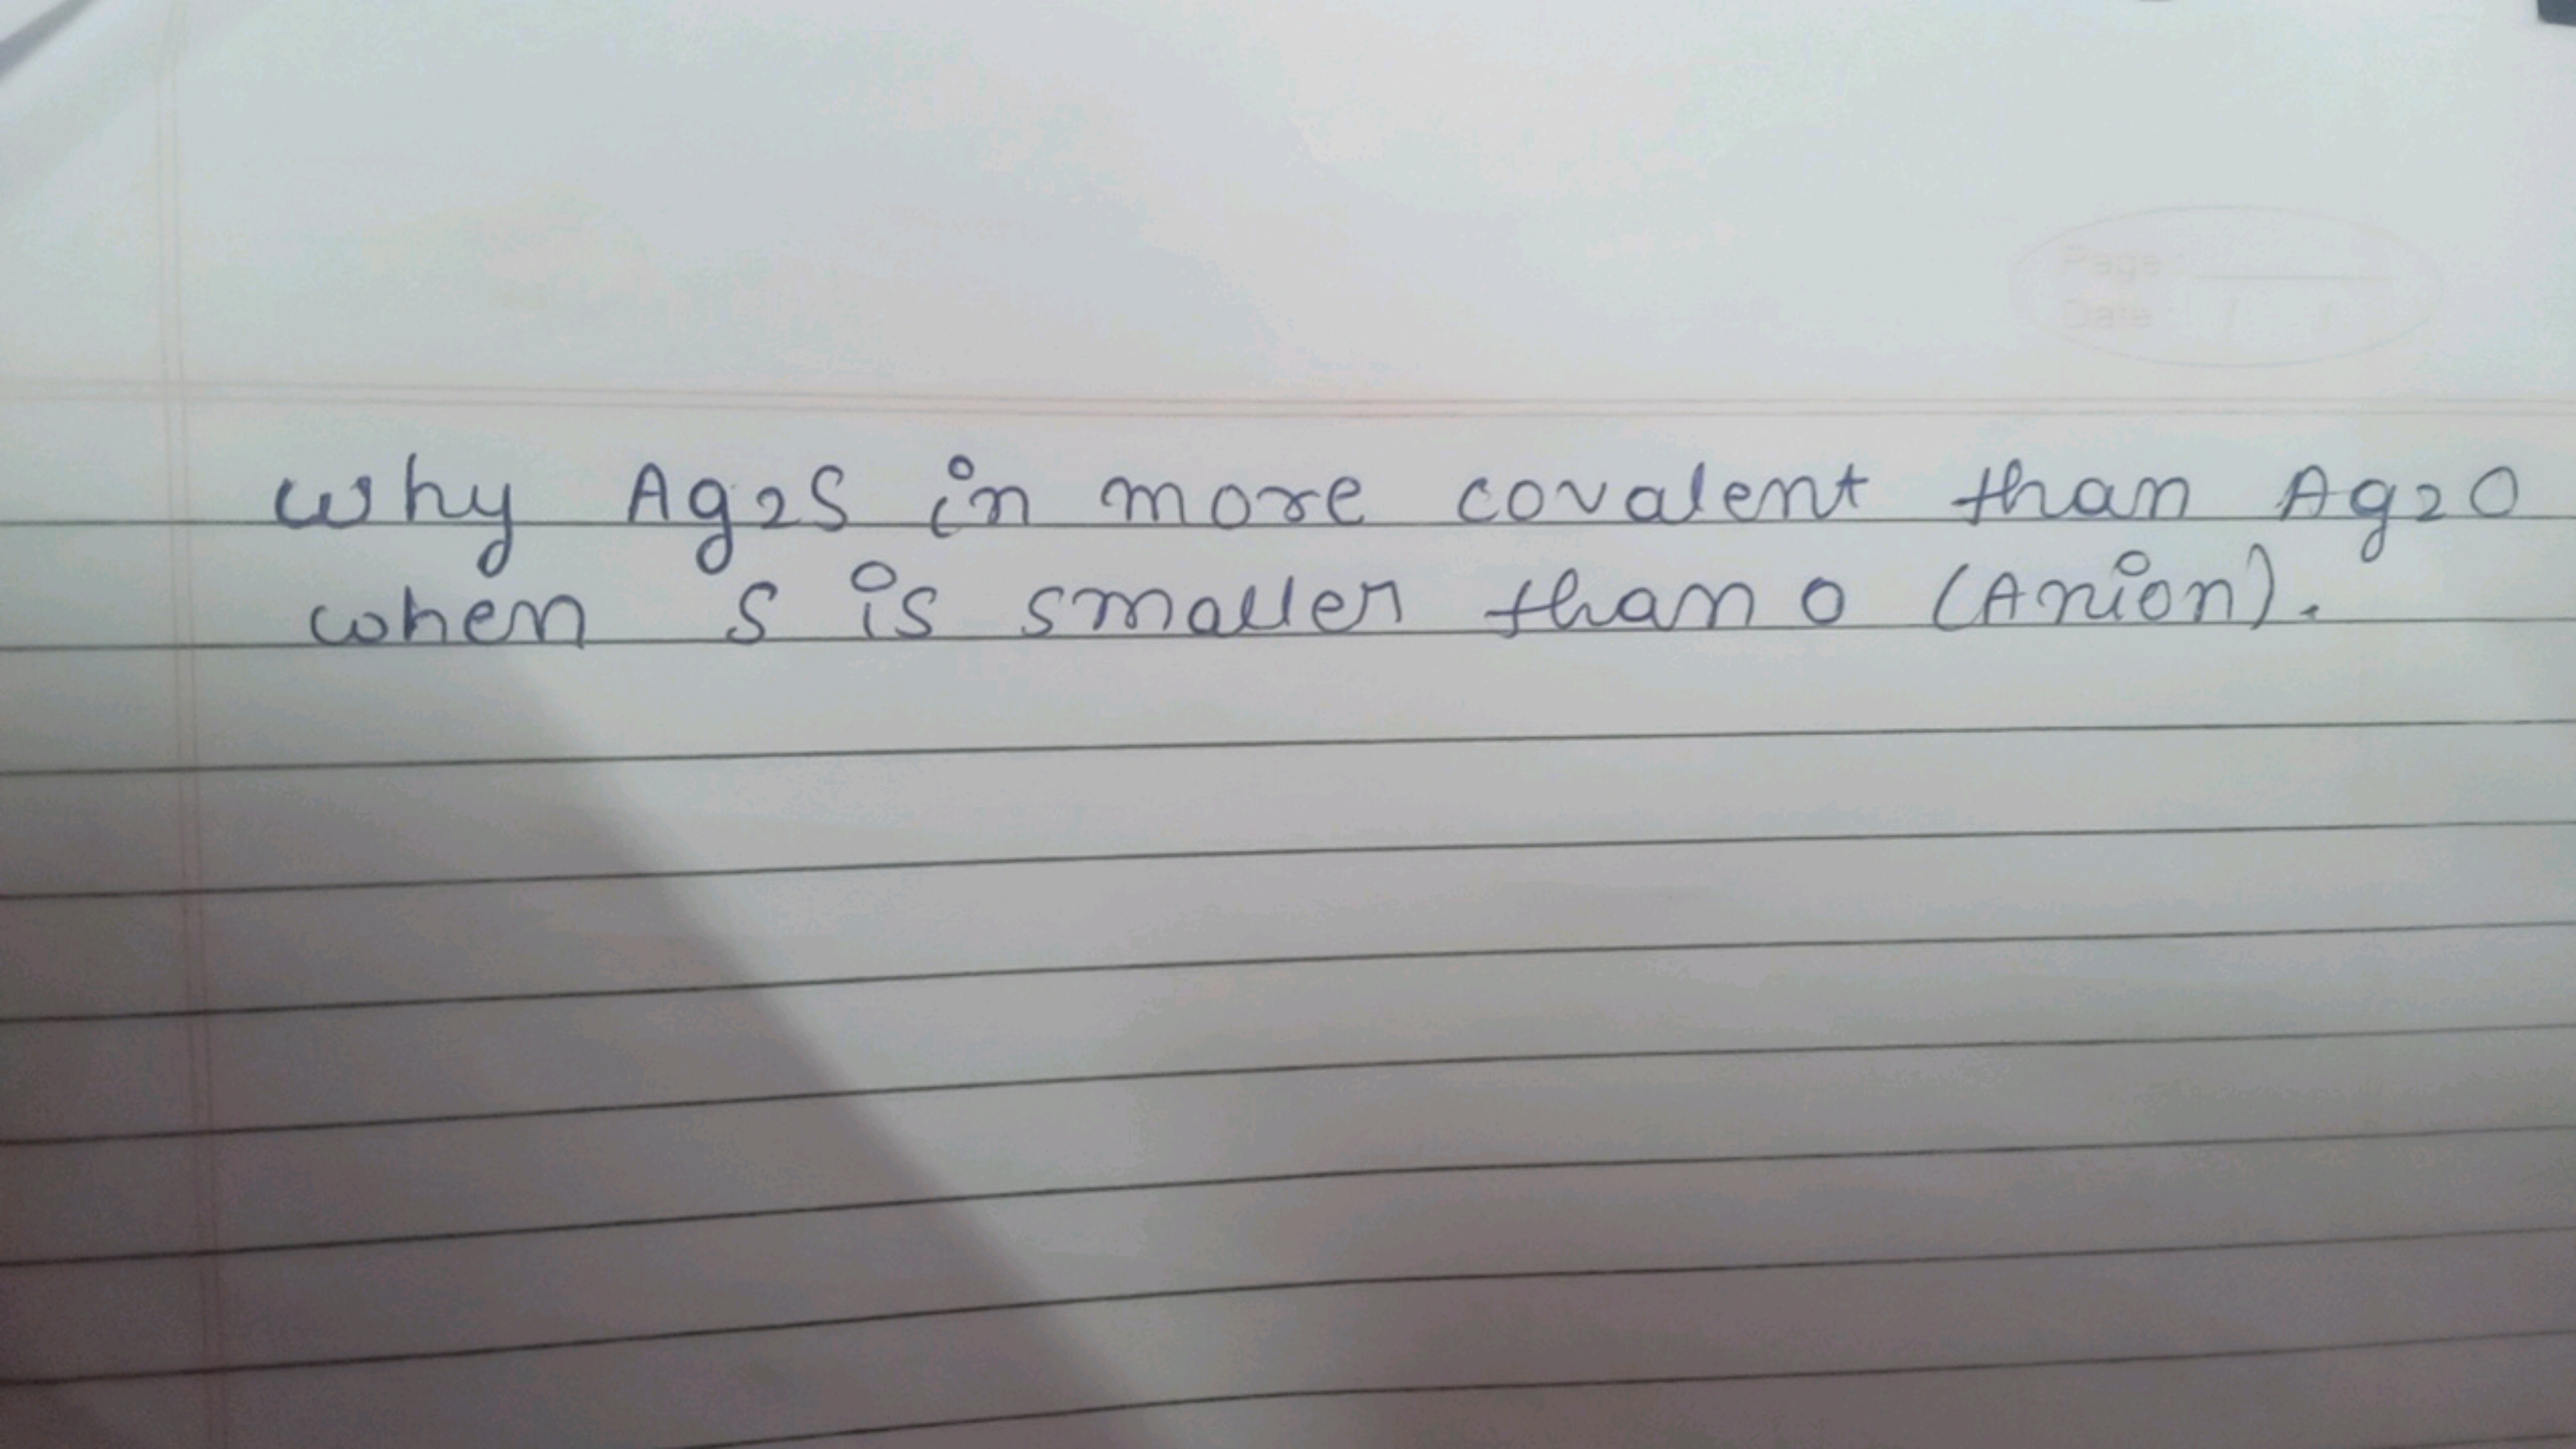 why Ag2S in more covalent than Ag2O
when S is smaller than O (Anion).
Page
Date